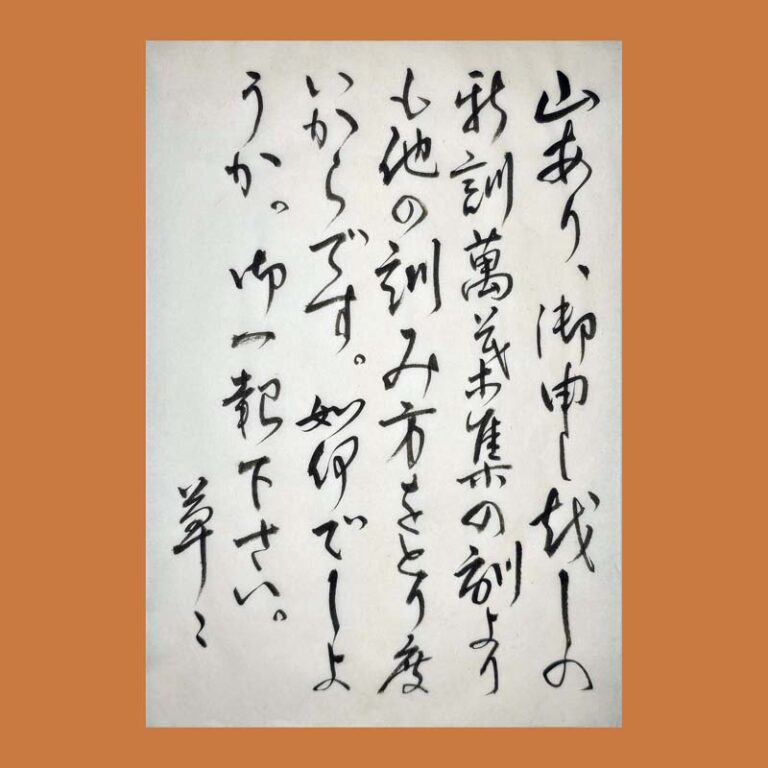 山あり、御申し越しの
新訓萬葉集の訓より
も他の訓み方をとり度
いからです。如何でしよ
うか。御一報下さい。
草々